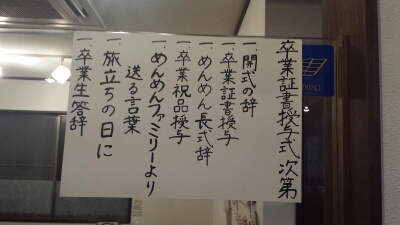 卒業証書授与式次第
一.開式の辞
一.卒業証書授与
一.めんめん長式辞
一.卒業祝品授与
一.めんめんファミリーより
送る言葉
一.旅立ちの日に
一.卒業生答辞